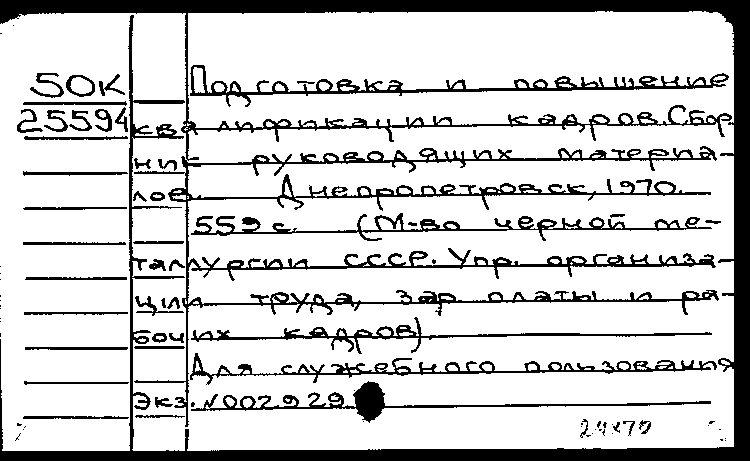 50к
25594
Подготовка и повышение
квалификации кадров. Сбор
ник руководящих материа-
лов. Днепропетровск, 1970.
559 с. (М-во черной ме-
таллургии СССР. Упр. организа-
ции труда, зар платы и ра-
бочих кадров).
Для служебного пользования
Экз. N002929